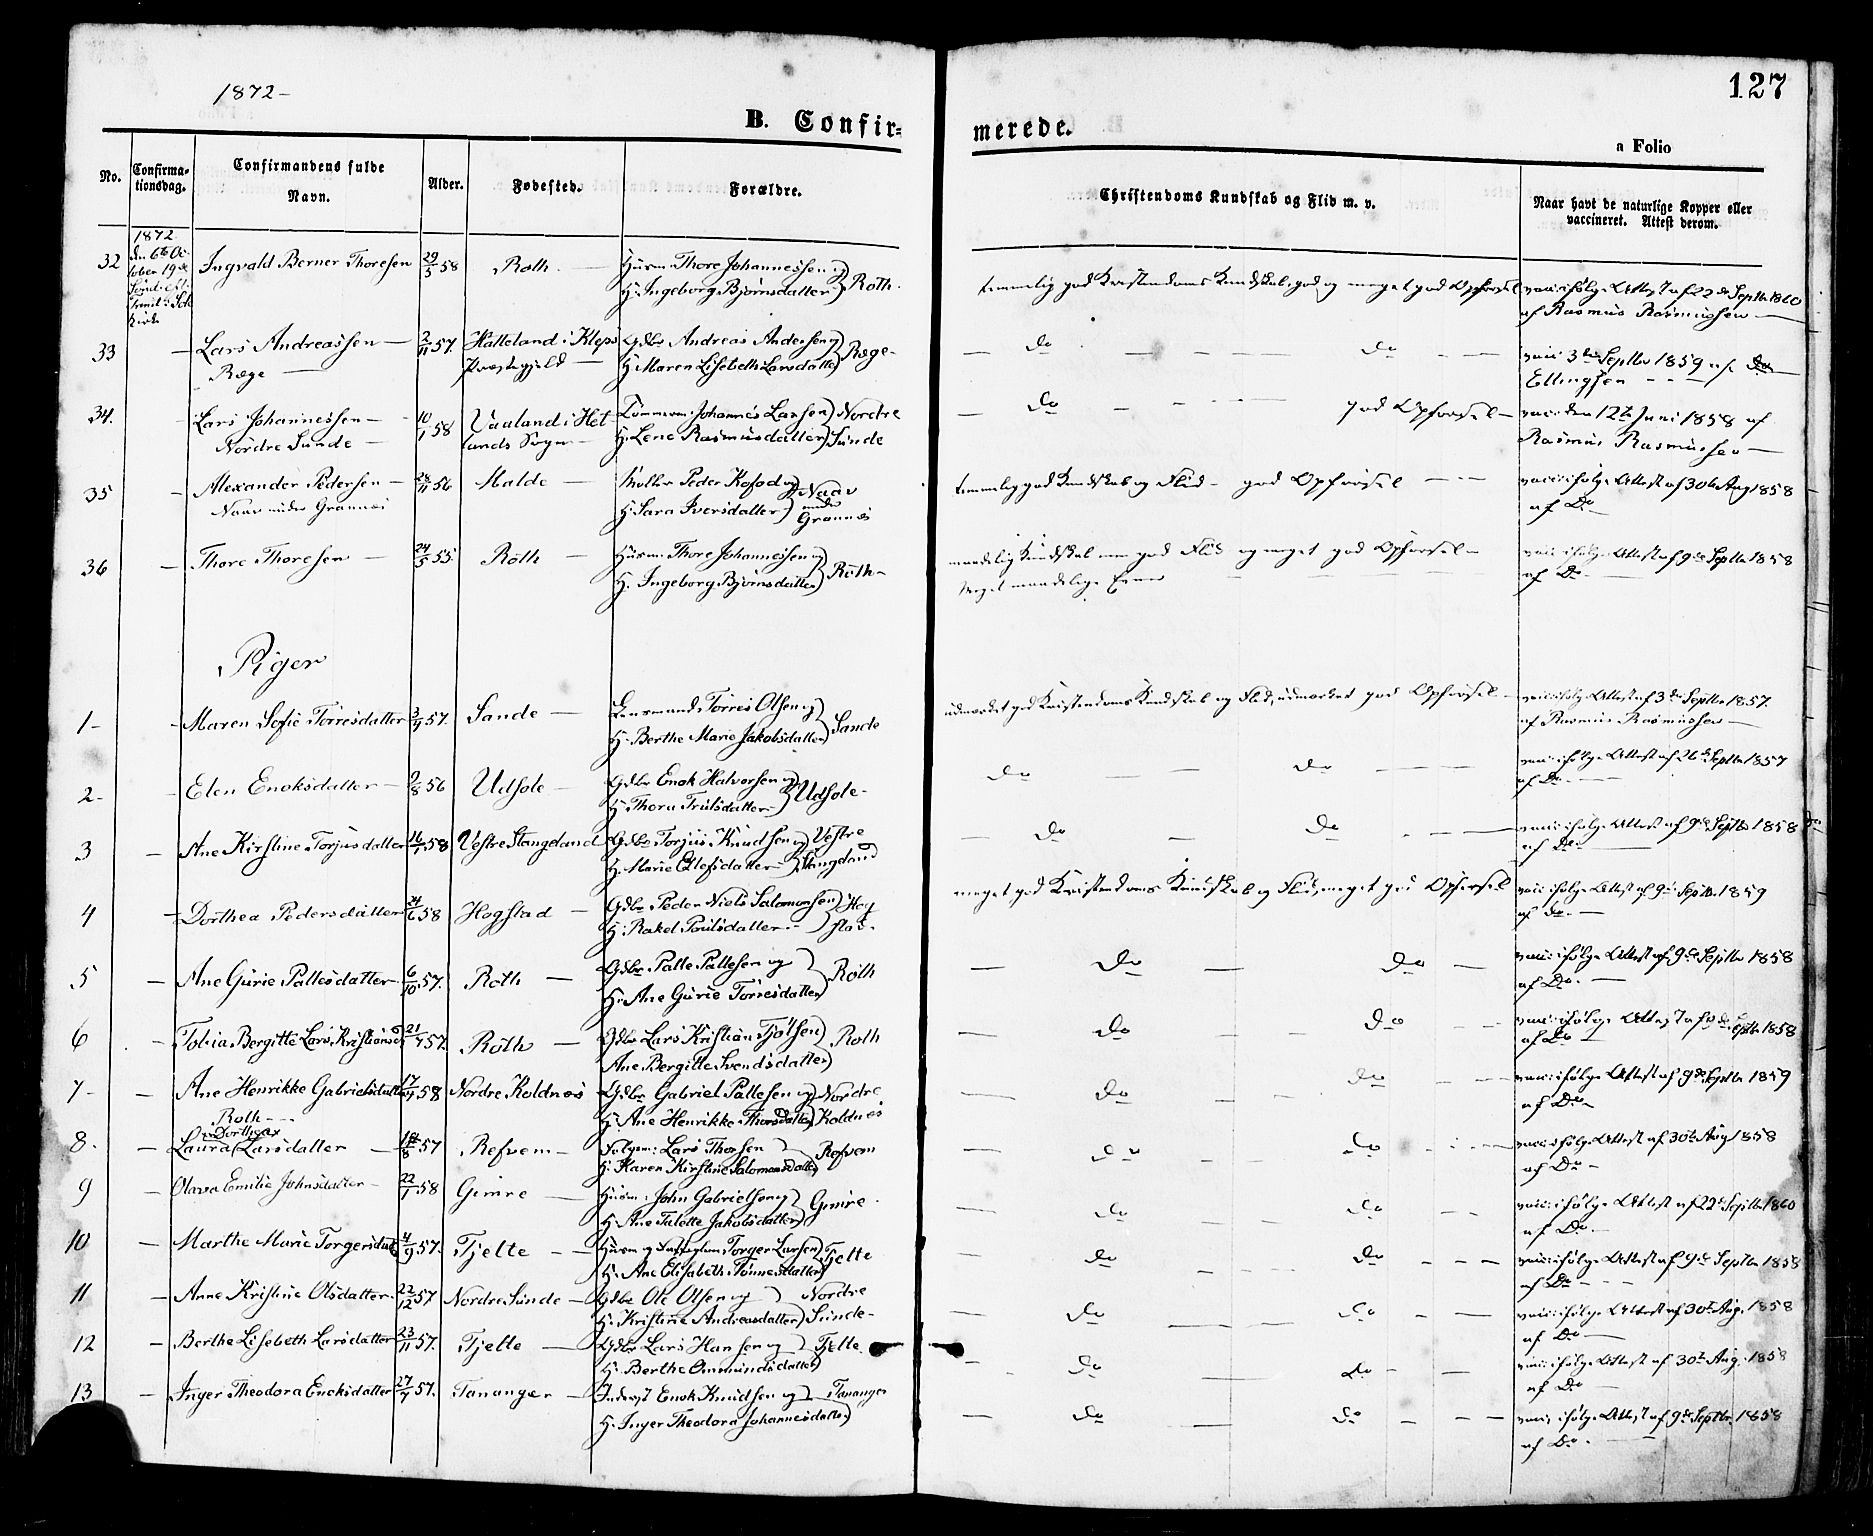 1872-
127
B. Confir=
merede.
a Folio
No.
Confirma-
tionsdag.
Confirmandens fulde
Navn.
Alder.
Fødested.
Forældre.
Christendoms Kundskab og Flid m. v.
Naar havt de naturlige Kopper eller
vaccineret. Attest derom.
1872.
den 6te Oc-
tober 19de
Sønd: eft.
Trinit: 
Kirke
32 Ingvald Berner Thoresen 29/5 58 Roth Huusm: Thore Johannessen og
H: Ingeborg Bjørnsdatter Roth.
temmelig god Kristendoms Kundskab, god og meget god Opførsel vacc: ifølge Attest af 22de Septbr 1860
af Rasmus Rasmussen
33 Lars Andreassen 2/11 57. Hatteland i Kleps Gdbr Andreas Andersen og
Ræge Præstegjeld H: Maren Lisebeth Larsdatter Ræge
do do vacc 3de Septbr 1859 af do
Ellingsen
34. Lars Johannessen 10/1 58 Vaaland i Het Tømmerm: Johannes Larsen Nordre
Nordre Sunde lands Sogn H: Lene Rasmusdatter Sunde
do god Opførsel vacc den 12te Juni 1858 af
Rasmus Rasmussen
35 Alexander Pedersen 56 Malde Møller Peder Kofod og Naav
Naav under Grannes H: Sara Iversdatter under
Grannes
temmelig god Kundskab og Flid god Opførsel vacc: ifølge Attest af 30te Aug 1858
af Do
36 Thore Thoresen 24/5 55. Röth Huusm: Thore Johannessen og
H: Ingeborg Bjørnsdatter Röth
maadelig Kundskab men god Flid og meget god Opførsel vacc: ifølge Attest af 9de Septbr 1858
meget maadelige Evner af Do
Piger
1- Maren Sofie Törresdatter 3/9 57. Sande Lensmand Törres Olsen og
H: Berthe Marie Jakobsdatter Sande
udmærket god Kristendoms Kundskab og Flid, udmærket god Opførsel vacc: ifølge Attest af 3de Septbr 1857.
af Rasmus Rasmussen
2- Elen Enoksdatter 9/8 56 Udsole Gdbr Enok Halvorsen og
H: Thora Trulsdatter Udsole
do do vacc: ifølge Attest af 26de Septbr 1857
af Do
3 Ane Kirstine Torjusdatter 16/1 58 Vestre Stangeland Gdbr Torjus Knudsen og Vestre
H: Marie Ellefsdatter Stangeland
do do vacc: ifølge Attest af 9de Septbr 1858
af Do
4 Dorthea Pedersdatter 24/6 58 Hogstad Gdbr Peder Niels Salomonsen Hog
H: Rakel Poulsdatter stad.
meget god Kristendoms Kundskab og Flid, meget god Opførsel vacc: ifølge Attest af 9de Septbr 1859
af do
5 Ane Gurie Pallesdatter 6/10 57. Roth Gdbr Palle Pallesen og
H: Ane Gurie Törresdatter Röth
do do vacc: ifølge Attest af 9de Septbr 1858
af Do
6 Tobia Bergitte Lars Kristiansd 21/7 57. Röth Gdbr Lars Kristian Tjölsen Roth
Ane Bergitte Svendsdatter
do do vacc: ifølge Attest af 9de Septbr 1858
af Do
7- Ane Henrikke Gabrielsdatter 58 Nordre Koldnes Gdbr Gabriel Pallesen og Nordre
Roth H: Ane Henrikke Thorsdatter Koldnes
do do vacc: ifølge Attest af 9de Septbr 1859
af Do
Dorthea
8. Laura Larsdatter 57 Refvem Lars Thorsen Refvem
H: Karen Kirstine Salomonsdatter
do do vacc ifølge Attest af 30te Aug 1858
af Do
9 Olava Emilie Johnsdatter 22/1 58 Gimre Huusm: John Gabrielsen og Gimre
H: Ane Talette Jakobsdatter
do do vacc: ifølge Attest af 22de Septbr 1860
af Do
10 Marthe Marie Torgersdatt 4/9 57. Tjelte Huusm og Torger Larsen Tjelte
H: Ane Elisabeth Tönnesdatter
do do vacc: ifølge Attest af 9de Septbr 1858
af Do
11 Anne Kristine Olsdatter 22/12 57 Nordre Sunde Gdbr Ole Olsen og Nordre
H: Kristine Andreasdatter Sunde
do do vacc: ifølge Attest af 30te Aug. 1858
af Do
12 Berthe Lisebeth Larsdatter 23/11 57. Tjelte Gdbr Lars Hansen og Tjelte
H: Berthe Ommundsdatter
do do vacc: ifølge Attest af 30te Aug. 1858
af Do
13 Inger Theodora Enoksdatter 27/7 57. Tananger Enok Knudsen og Tananger
H: Inger Theodora Johannesdatter
do do vacc: ifølge Attest af 9de Septbr. 1858
af Do.